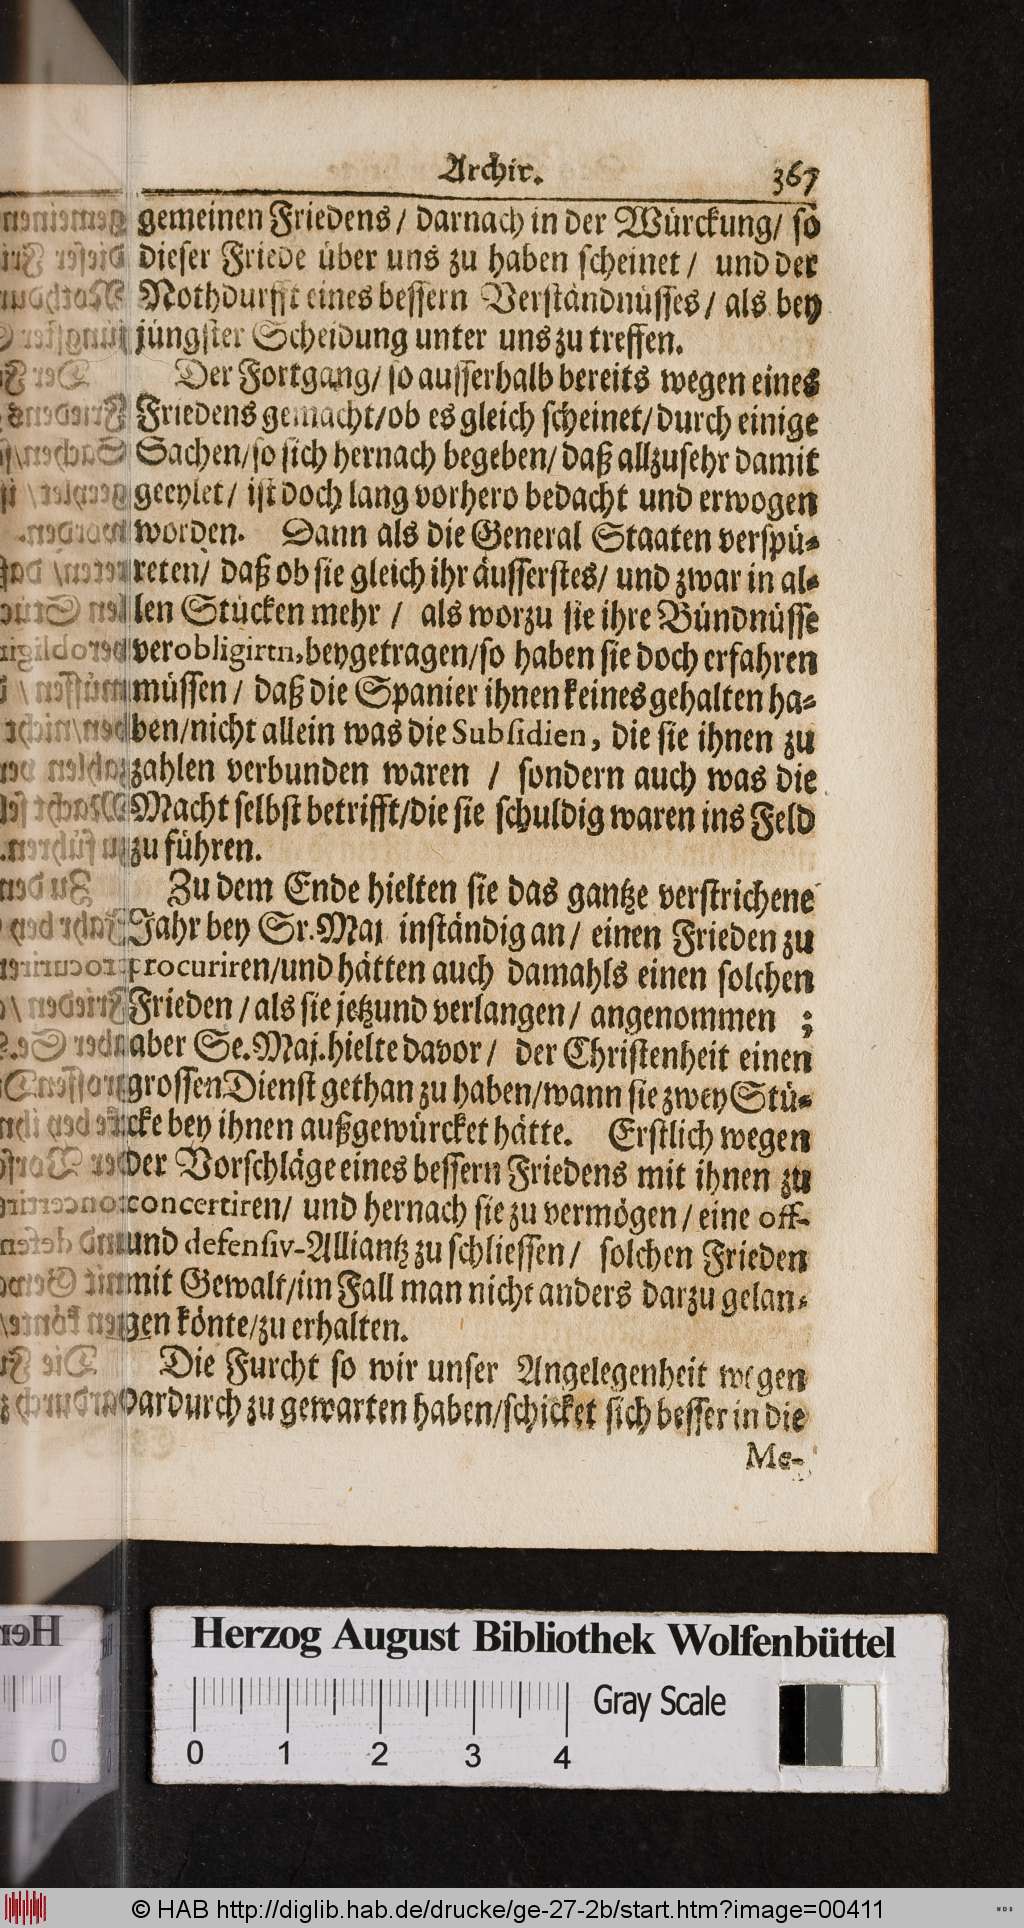 Archiv.
367
gemeinen Friedens / darnach in der Würckung / so
dieser Friede über uns zu haben scheinet / und der
Nothdurfft eines bessern Verständnüsses / als bey
jüngster Scheidung unter uns zu treffen.
Der Fortgang / so ausserhalb bereits wegen eines
Friedens gemacht / ob es gleich scheinet / durch einige
Sachen / so sich hernach begeben / daß allzusehr damit
geeylet / ist doch lang vorhero bedacht und erwogen
worden. Dann als die General Staaten verspü-
reten / daß ob sie gleich ihr äusserstes / und zwar in al-
len Stücken mehr / als worzu sie ihre Bündnüsse
verobligirtn, beygetragen / so haben sie doch erfahren
müssen / daß die Spanier ihnen keines gehalten ha-
ben / nicht allein was die Subsidien, die sie ihnen zu
zahlen verbunden waren / sondern auch was die
Macht selbst betrifft / die sie schuldig waren ins Feld
zu führen.
Zu dem Ende hielten sie das gantze verstrichene
Jahr bey Sr. Maj inständig an / einen Frieden zu
procuriren / und hätten auch damahls einen solchen
Frieden / als sie jetzund verlangen / angenommen ;
aber Se. Maj. hielte davor / der Christenheit einen
grossen Dienst gethan zu haben / wann sie zwey Stü-
cke bey ihnen außgewürcket hätte. Erstlich wegen
der Vorschläge eines bessern Friedens mit ihnen zu
concertiren / und hernach sie zu vermögen / eine off-
und defensiv-Alliantz zu schliessen / solchen Frieden
mit Gewalt / im Fall man nicht anders darzu gelan-
gen könte / zu erhalten.
Die Furcht so wir unser Angelegenheit wegen
dardurch zu gewarten haben / schicket sich besser in die
Me-
Herzog August Bibliothek Wolfenbüttel
0 1 2 3 4 Gray Scale
© HAB http://diglib.hab.de/drucke/ge-27-2b/start.htm?image=00411